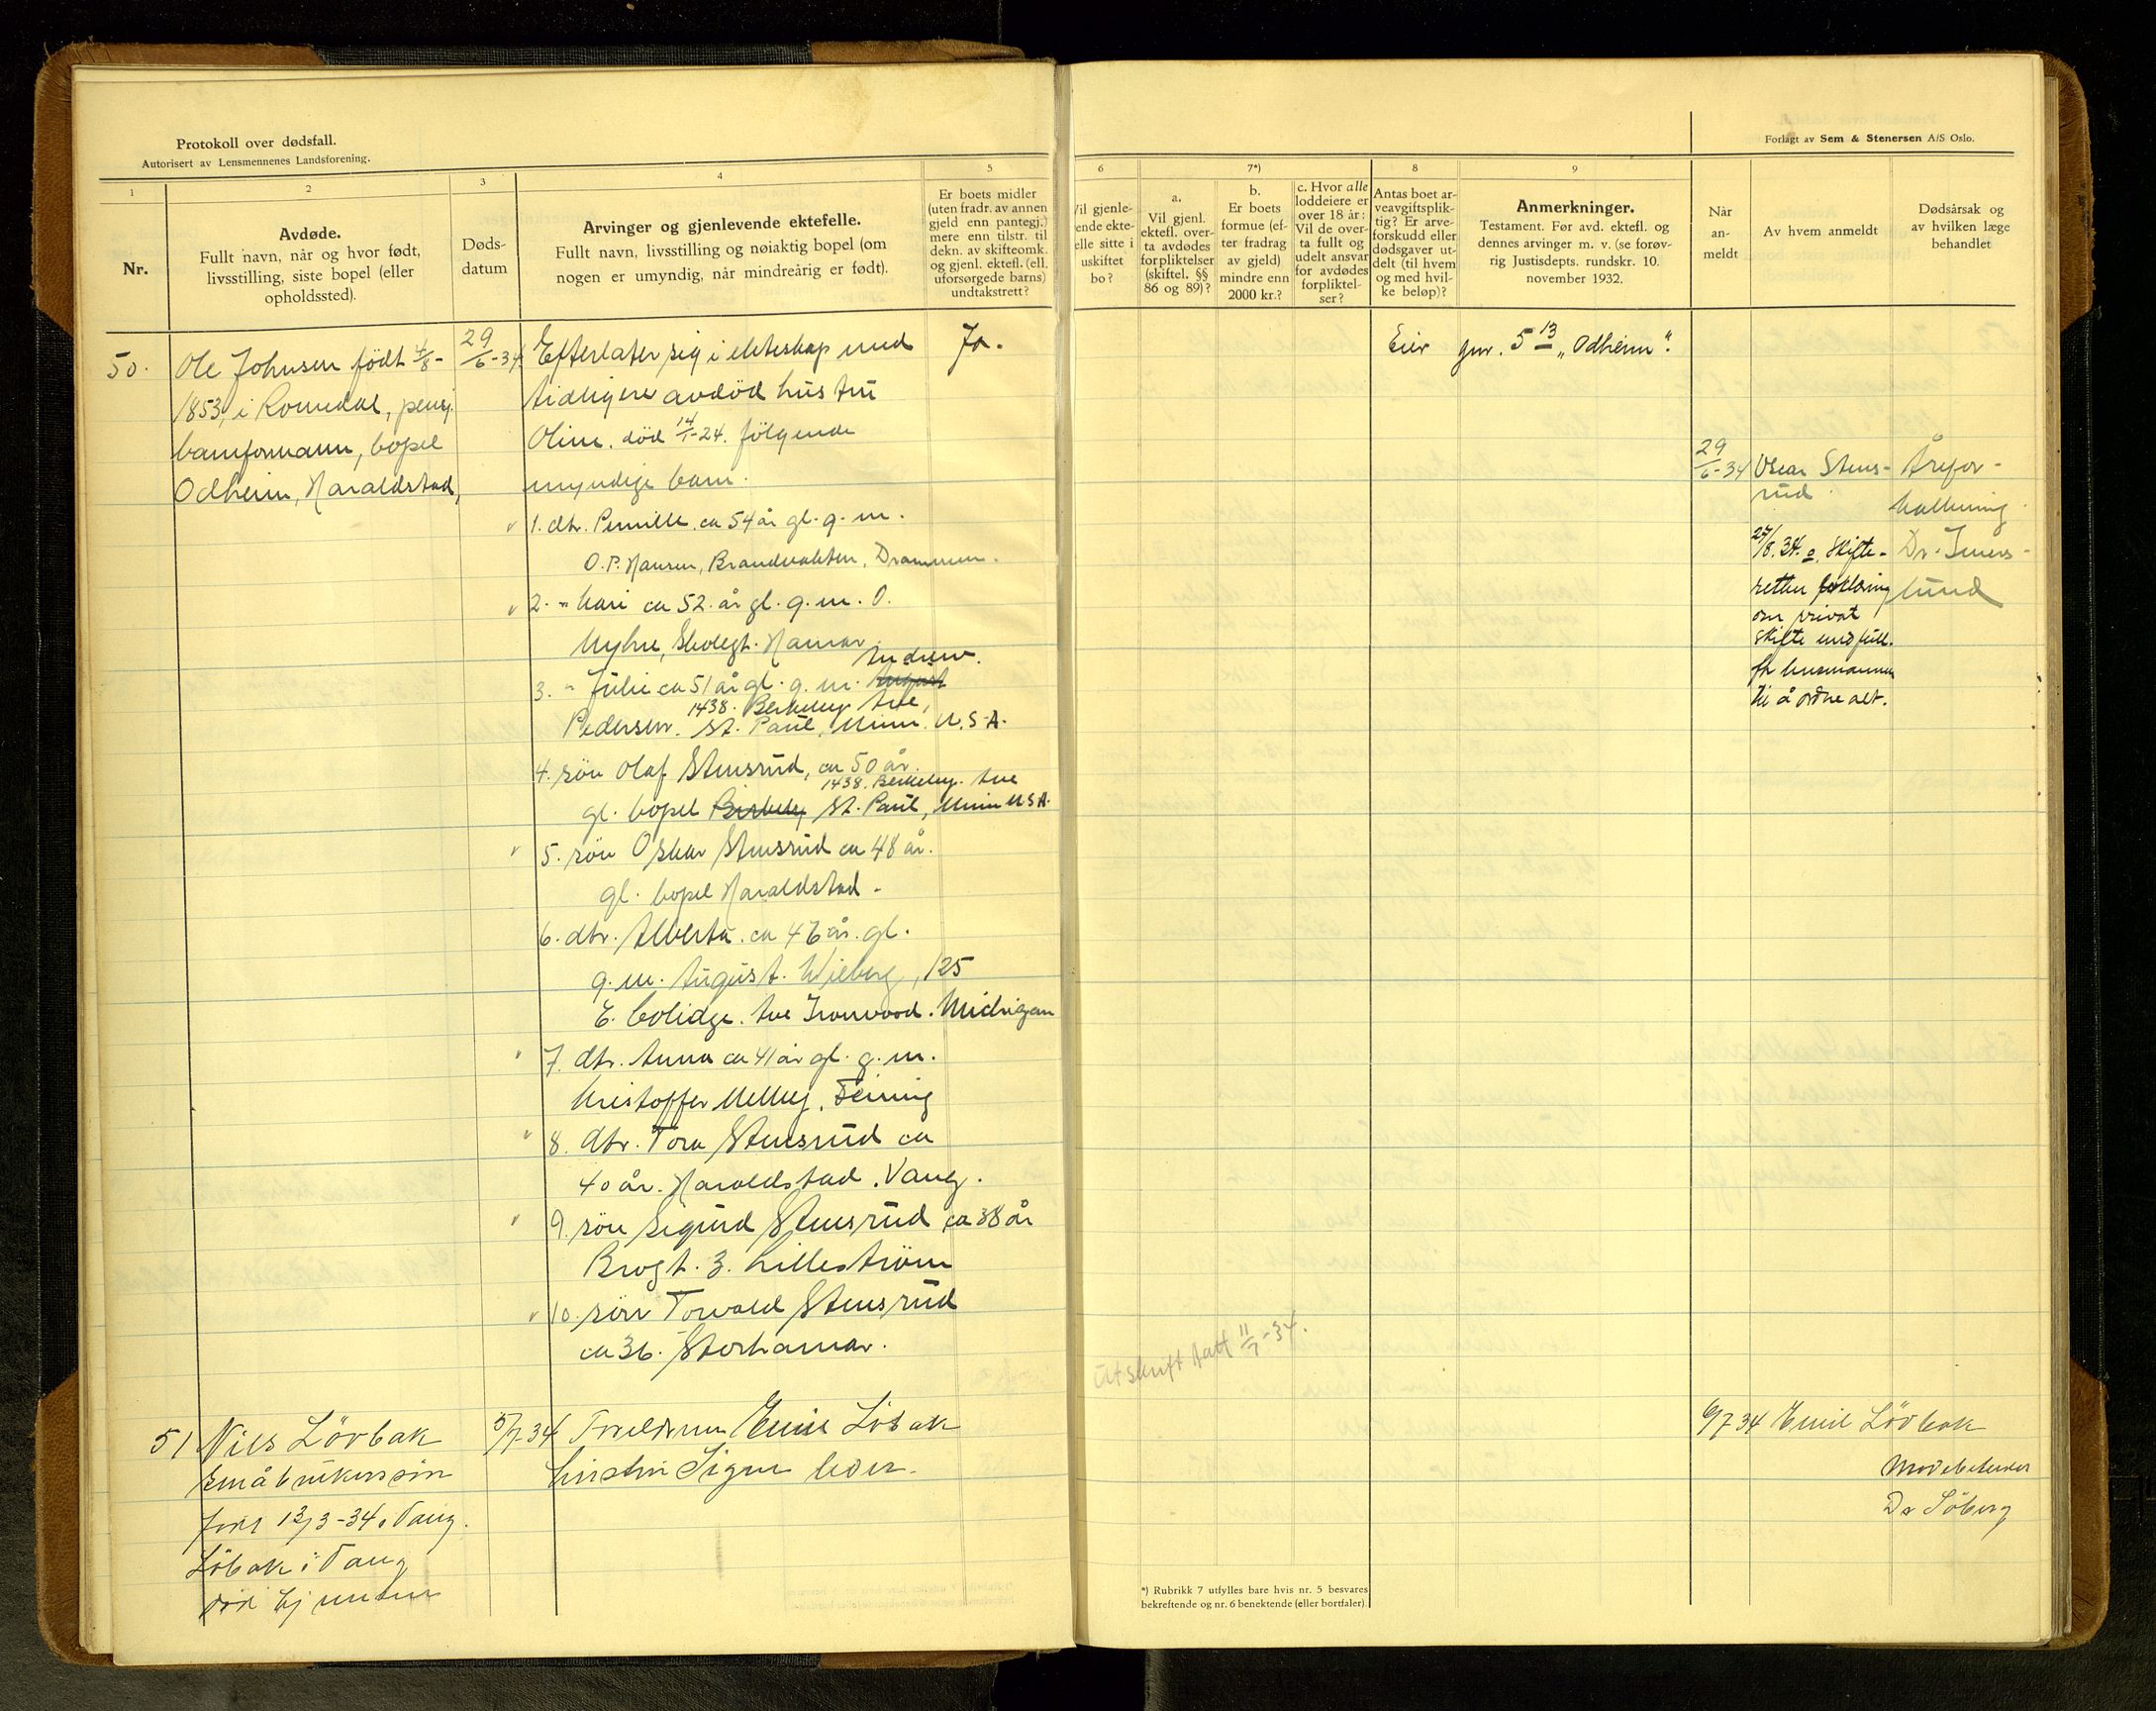 Protokoll over dødsfall.
Autorisert av Lensmennenes Landsforening.
Forlagt av Sem & Stenersen A/S Oslo.
1
Nr.
2
Avdøde.
Fullt navn, når og hvor født,
livsstilling, siste bopel (eller
opholdssted).
3
Døds-
datum
4
Arvinger og gjenlevende ektefelle.
Fullt navn, livsstilling og nøiaktig bopel (om
nogen er umyndig, når mindreårig er født).
5
Er boets midler
(uten fradr. av annen
gjeld enn pantegj.)
mere enn tilstr. til
dekn. av skifteomk.
og gjenl. ektefl. (ell.
uforsørgede barns)
undtakstrett?
6
Vil gjenle-
ende ekte-
elle sitte i
uskiftet
bo?
7*)
a.
Vil gjenl.
ektefl. over-
ta avdødes
forpliktelser
(skiftel. §§
86 og 89)?
b.
Er boets
formue (ef-
ter fradrag
av gjeld)
mindre enn
2000 kr.?
c. Hvor alle
loddeiere er
over 18 år:
Vil de over-
ta fullt og
udelt ansvar
for avdødes
forpliktel-
ser?
8
Antas boet ar-
veavgiftsplik-
tig? Er arve-
forskudd eller
dødsgaver ut-
delt (til hvem
og med hvil-
ke beløp)?
9
Anmerkninger.
Testament. Før avd. ektefl. og
dennes arvinger m. v. (se forøv-
rig Justisdepts. rundskr. 10.
november 1932.
Når
an-
meldt
Av hvem anmeldt
Dødsårsak og
av hvilken læge
behandlet
50.
Ole Johnsen født 4/8-
1853, i Romedal, pensj.
banformann, bopel
Odheim, Haraldstad,
29/6-34.
Efterlater sig i ekteskap med
tidligere avdöd hustru
Oline. död 14/1-24. fölgende
myndige barn.
1. dtr. Pernille. ca 54 år gl. g. m.
O. P. Hansen, Brandvakten, Drammen.
2. " Mari ca 52. år gl. g. m. O.
Myhre, Skolegt. Hamar.
Andrew.
3. " Julie ca 51 år gl. g. m. August
1438. Berkeley Ave,
Pedersen. St. Paul, Minn. U. S. A.
4. sön Olaf Stensrud, ca 50 år.
1438. Berkeley. Ave
gl. bopel Birkely St. Paul, Minn U S A.
5. sön Oskar Stensrud ca 48 år.
gl. bopel Haraldstad.
6. dtr. Alberta. ca 46 år. gl.
g. m. August. Wiberg, 125
E. Colidge. Ave Ironwood. Michigan
7. dtr. Anna ca 41 år gl. g. m.
Kristoffer Melby, Feiring
8. dtr. Tora Stensrud ca
40 år. Haraldstad. Vang.
9. sön Sigurd Stensrud ca 38 år
Brogt. 3. Lilleström
10. sön Torvald Stensrud
ca 36. Storhamar.
Ja.
Eier gnr. 5 13 „Odheim“.
29/6-34
Oscar Stens-
rud
27/8. 34. a. Skifte-
retten erklæring
om privat
skifte med full.
for lensmannen
til å ordne alt.
Årefor-
kalkning
Dr. Imers-
lund
Utskrift tatt 11/7-34.
51
Nils Lövbak
småbrukersön
född 13/3-34. Vang.
Löbak i Vang
5/7-34
Foreldrene Emil Löbak
hustru Signe lever.
6/7 34
Emil Lövbak
Dr Söberg
*) Rubrikk 7 utfylles bare hvis nr. 5 besvares
bekreftende og nr. 6 benektende (eller bortfaler).